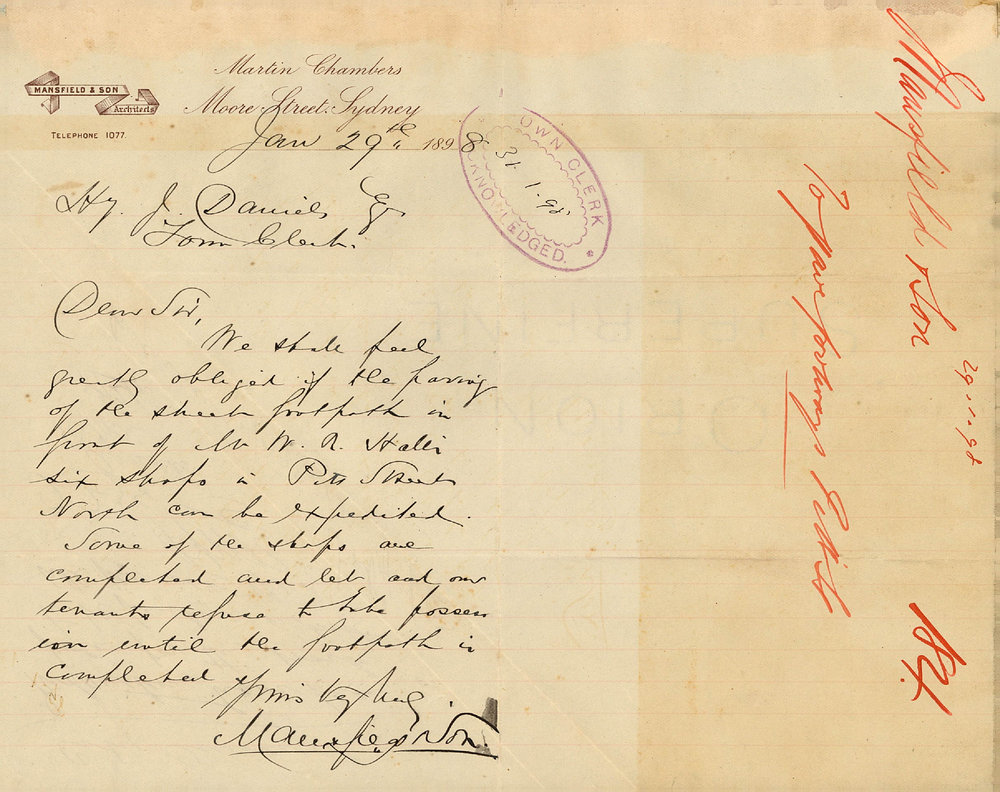 MANSFIELD & SON
Architects
TELEPHONE 1077.
Martin Chambers
Moore Street, Sydney
Jan 29th 1898
TOWN CLERK
31.1.98
ACKNOWLEDGED.
Hy. J. Daniels Esq
Town Clerk.
Dear Sir,
We shall feel
greatly obliged if the paving
of the street footpath in
front of Mr W. R. Hall's
six shops in Pitt Street
North can be expedited.
Some of the shops are
completed and let and our
tenants refuse to take possess
ion until the footpath is
completed
Yours very truly.
Mansfield & Son.
Mansfield & Son
29.1.98
To pave footways Pitt St
184